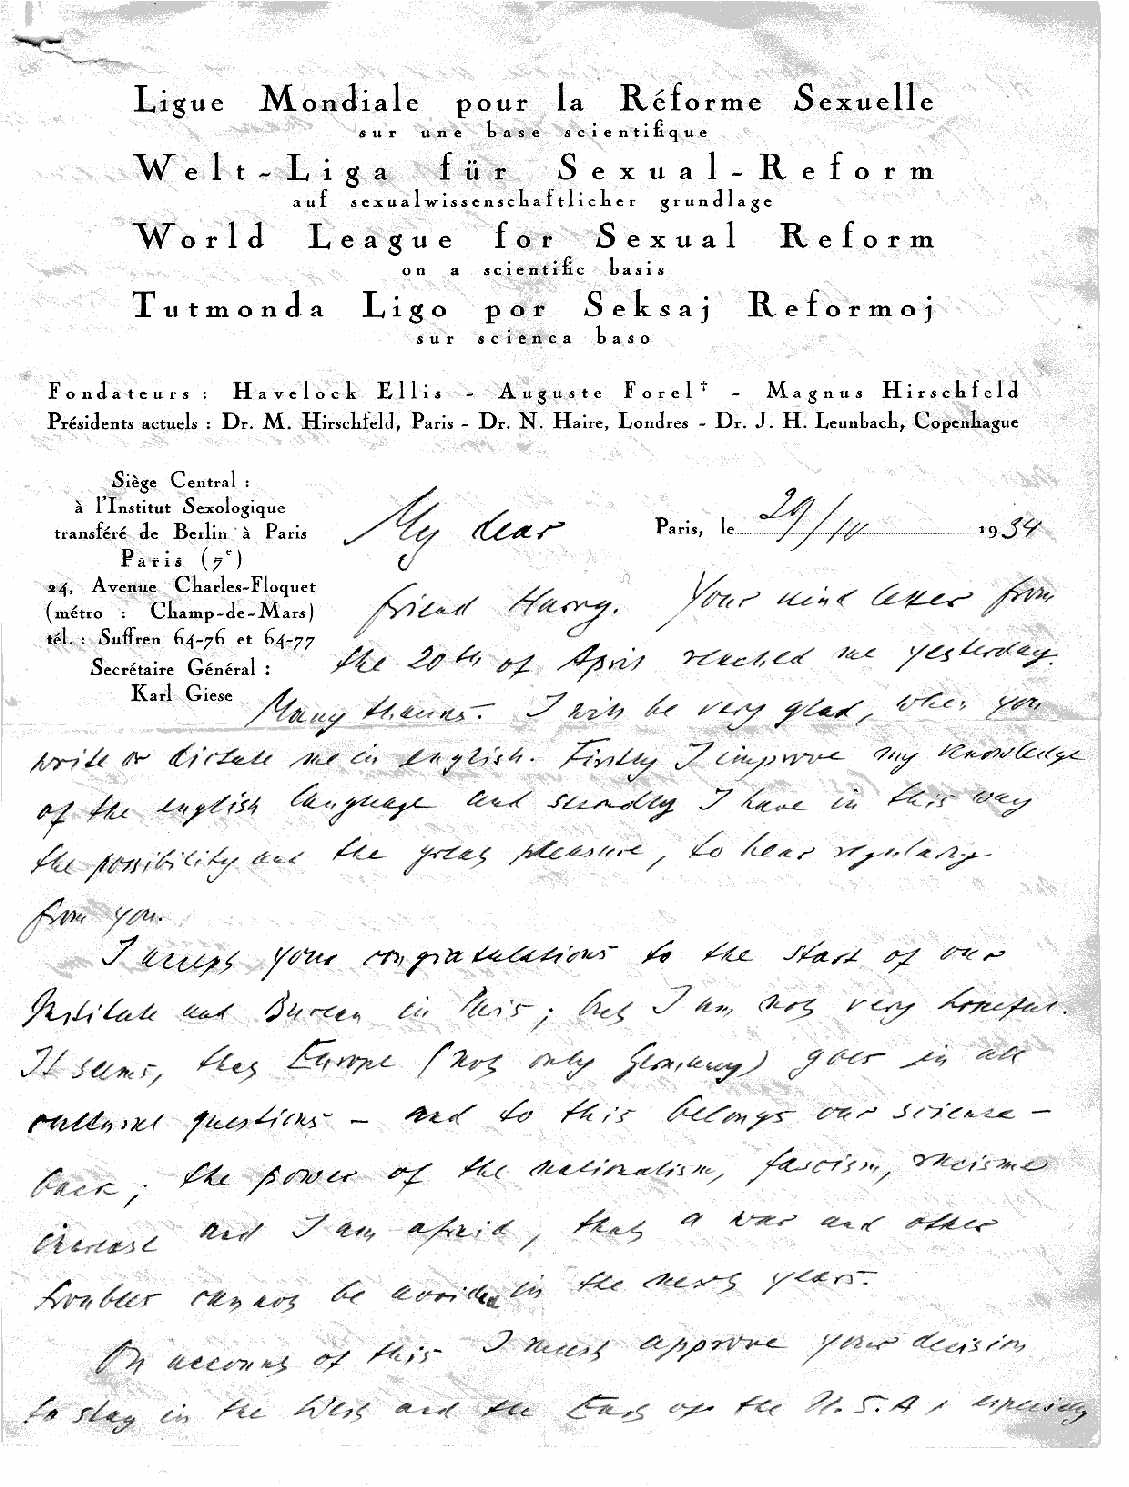 Ligue Mondiale pour la Réforme Sexuelle
sur une base scientifique
Welt-Liga für Sexual-Reform
auf sexualwissenschaftlicher grundlage
World League for Sexual Reform
on a scientific basis
Tutmonda Ligo por Seksaj Reformoj
sur scienca baso
Fondateurs : Havelock Ellis - Auguste Forel† - Magnus Hirschfeld
Présidents actuels : Dr. M. Hirschfeld, Paris - Dr. N. Haire, Londres - Dr. J. H. Leunbach, Copenhague
Siège Central :
à l'Institut Sexologique
transféré de Berlin à Paris
Paris (7e)
24, Avenue Charles-Floquet
(métro : Champ-de-Mars)
tél. : Suffren 64-76 et 64-77
Secrétaire Général :
Karl Giese
Paris, le 29/IV 1934
My dear
friend Harry. Your kind letter from
the 20th of April reached me yesterday.
Many thanks. I will be very glad, when you
write or dictate me in english. Firstly I improve my knowledge
of the english language and secondly I have in this way
the possibility and the great pleasure, to hear regularly
from you.
I accept your congratulations to the start of our
Institute and Bureau in Paris; but I am not very hopeful.
It seems, that Europe (not only Germany) goes in all
cultural questions - and to this belongs our science -
back; the power of the nationalism, fascism, racisme
increase and I am afraid, that a war and other
troubles cannot be avoided in the next years.
On account of this I must approve your decision
to stay in the West and the East of the U.S.A, especially